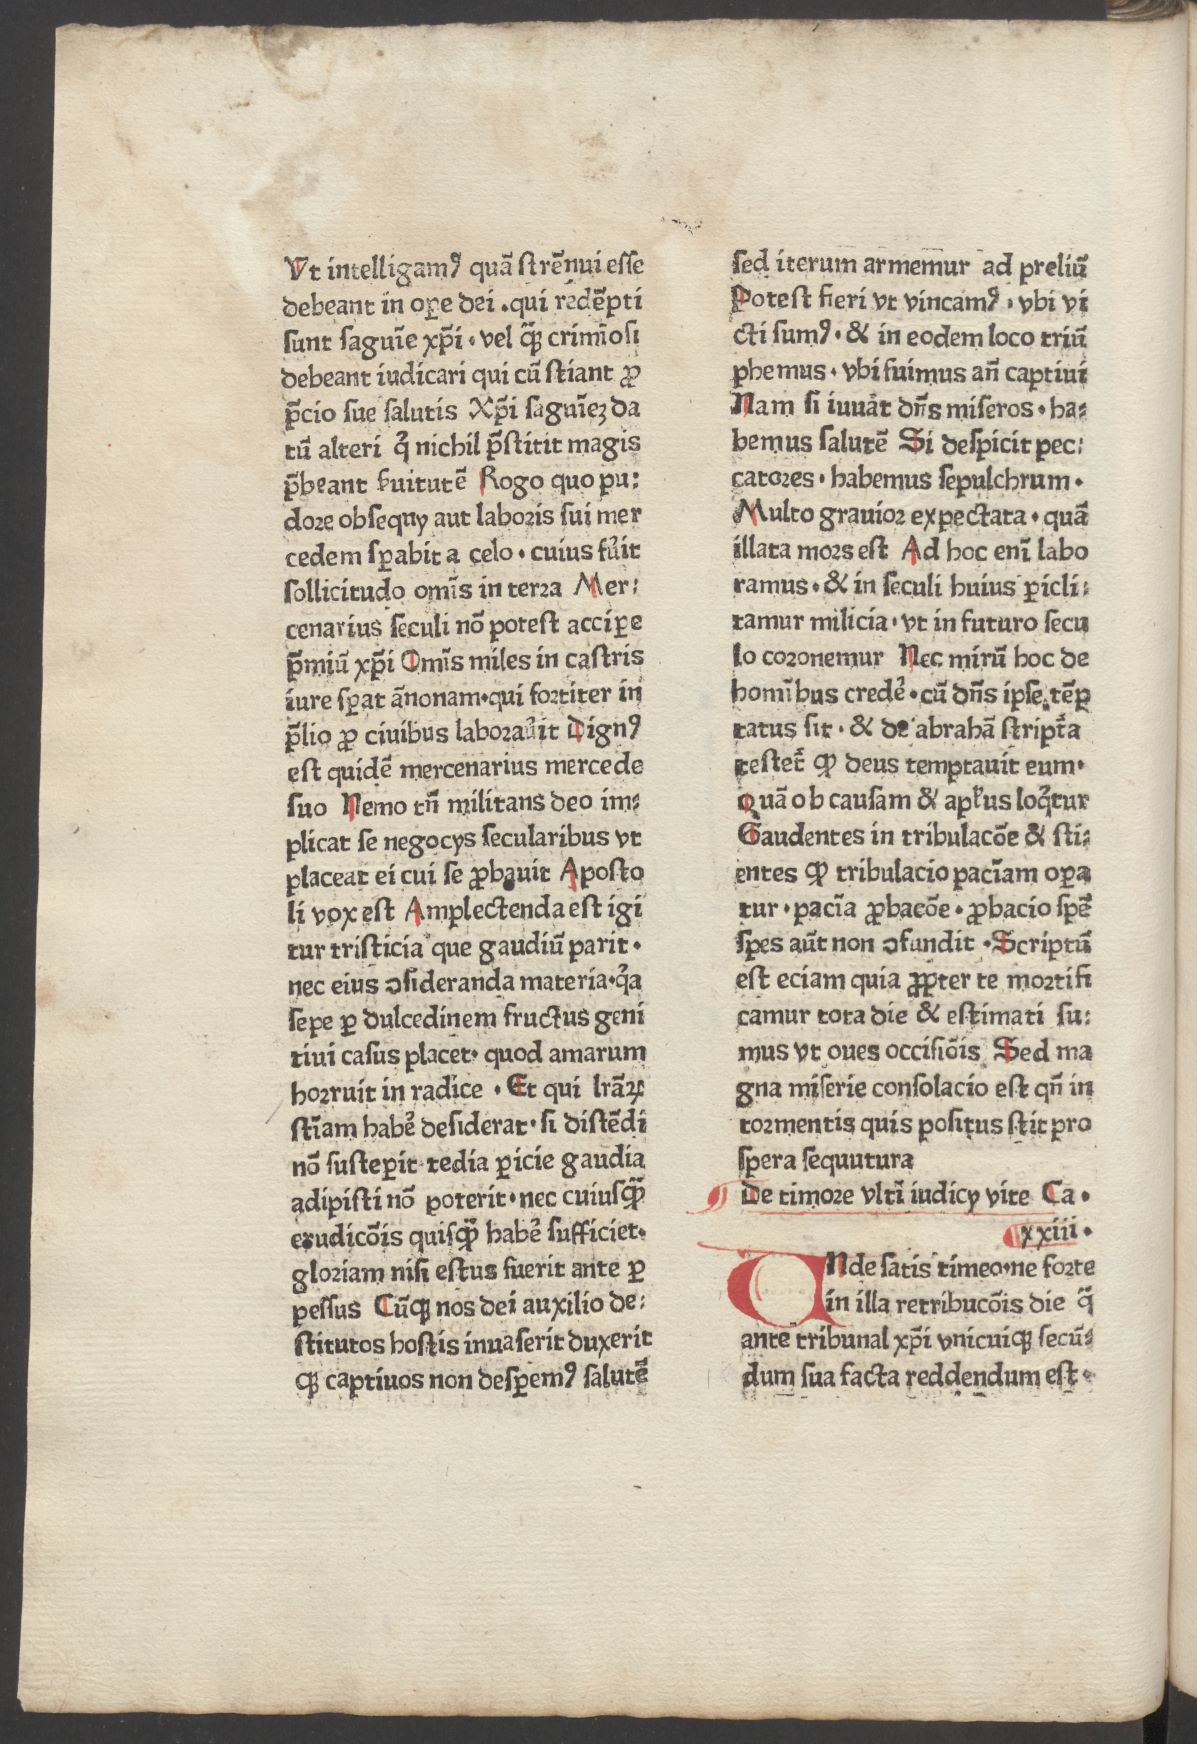 Vt intelligamꝰ quā strēnui esse
debeant in oꝑe dei · qui redēpti
sunt saguīe xp̄i · vel q̄ꝫ crimīosi
debeant iudicari qui cū stiant ꝓ
p̄cio sue salutis Xp̄i saguīeꝫ da
tū alteri qͥ nichil p̄stitit magis
p̄beant ẜuitutē Rogo quo pu:
dore obsequy aut laboris sui mer
cedem sꝑabit a celo · cuius fu̓it
sollicitudo omīs in terra Mer:
cenarius seculi nō potest acciꝑe
p̄miū xp̄i Omīs miles in castris
iure sꝑat ānonam · qui fortiter in
p̄lio ꝓ ciuibus laborau̓it Dignꝰ
est quidē mercenarius mercede
suo Nemo tn̄ militans deo im:
plicat se negocys secularibus vt
placeat ei cui se ꝓbauit Aposto
li vox est Amplectenda est igi
tur tristicia que gaudiū parit ·
nec eius ↄsideranda materia · qͣa
sepe ꝑ dulcedinem fructus geni
tiui casus placet · quod amarum
horruit in radice · Et qui lrāꝝ
stīam habe̓ desiderat · si distēdi
nō susteꝑit tedia ꝑicie gaudia
adipisti nō poterit · nec cuiusq̄ꝫ
erudicōis quisq̄ꝫ habe̓ sufficiet ·
gloriam nisi estus fuerit ante ꝑ
pessus Cūqꝫ nos dei auxilio de:
stitutos hostis inuaserit duxerit
qꝫ captiuos non desꝑemꝰ salutē
sed iterum armemur ad preliū
Potest fieri vt vincamꝰ · vbi vi
cti sumꝰ · & in eodem loco triū
phemus · vbi fuimus an̄ captiui
Nam si iuuāt dn̄s miseros · ha:
bemus salutē Si despicit pec:
catores · habemus sepulchrum ·
Multo grauior expectata · quā
illata mors est Ad hoc enī labo
ramus · & in seculi huius ꝑicli:
tamur milicia · vt in futuro secu
lo coronemur Nec mirū hoc de
homībus crede̓ · cū dn̄s ipse tēp
tatus sit · & de abrahā stript̄a
testet᷑ ꝙ deus temptauit eum ·
Quā ob causam & apl̓us loqͥtur
Gaudentes in tribulacōe & sti:
entes ꝙ tribulacio pacīam oꝑa
tur · pacīa ꝓbacōe · ꝓbacio spē
spes aūt non ↄfundit · Scriptū
est eciam quia ꝓpter te mortifi
camur tota die & estimati su:
mus vt oues occisiōis Sed ma
gna miserie consolacio est qn̄ in
tormentis quis positus stit pro
spera sequutura
De timore vltī iudicy vite Ca ·
xxiii ·
UNde satis timeo · ne forte
in illa retribucōis die q̄
ante tribunal xp̄i vnicuiqꝫ secū:
dum sua facta reddendum est ·